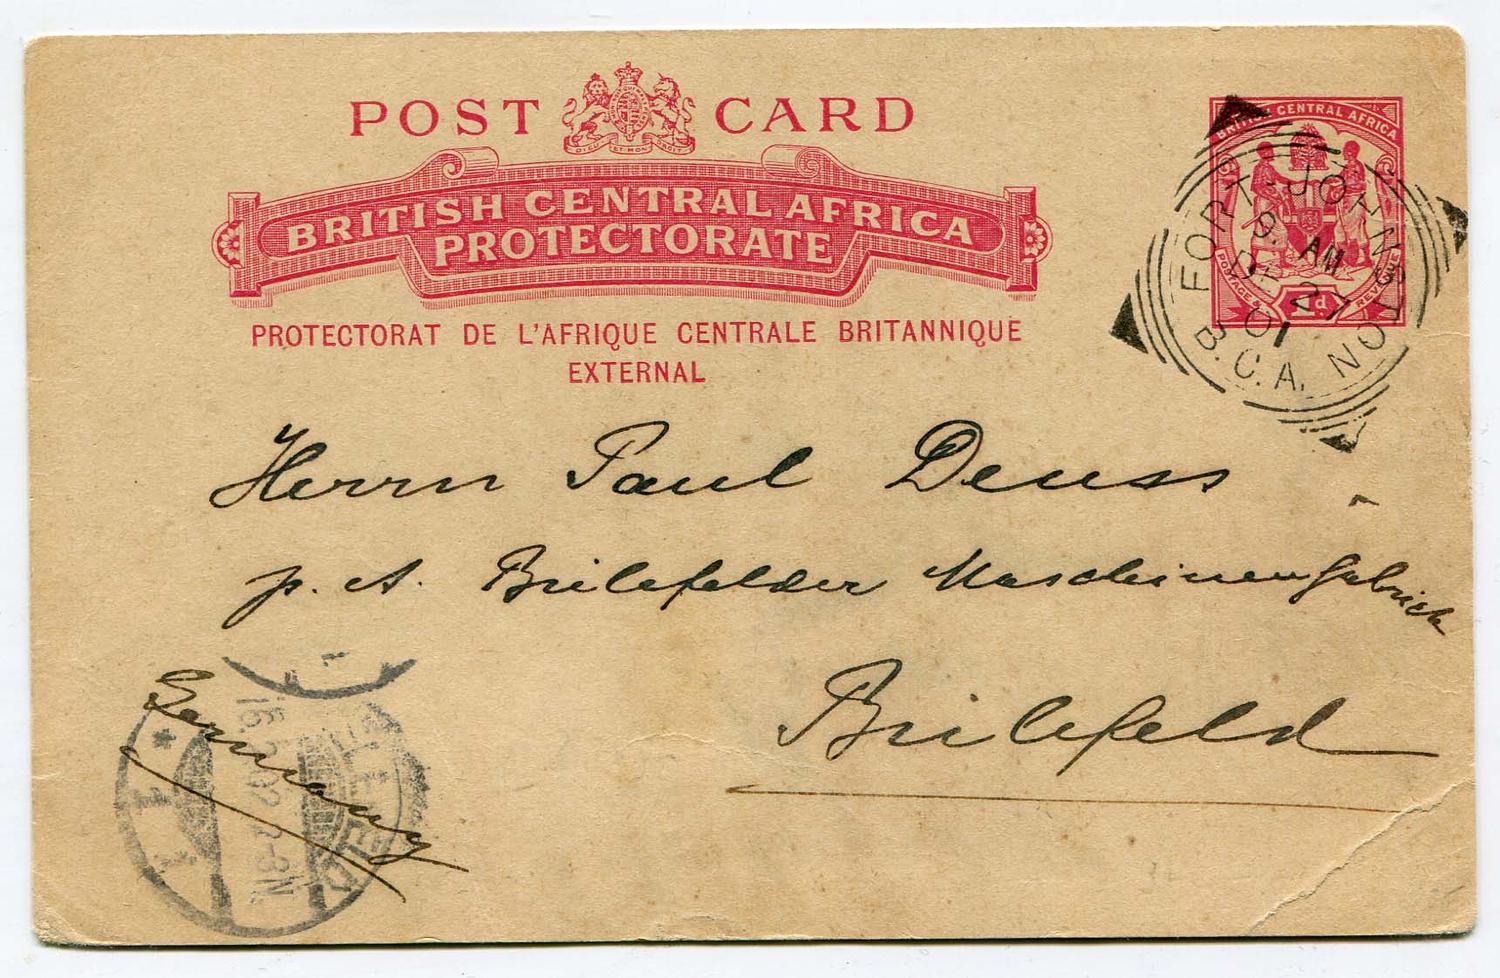 POST CARD
DIEU ET MON DROIT
BRITISH CENTRAL AFRICA
PROTECTORATE
PROTECTORAT DE L'AFRIQUE CENTRALE BRITANNIQUE
EXTERNAL
BRITISH CENTRAL AFRICA
POSTAGE & REVENUE
1d
FORT-JOHNSTON
9. AM
DE 27
01
B.C.A.
Herrn Paul Deuss
p. A. Bielefelder Maschinenfabrick
Bielefeld
Germany
BIELEFELD
16. 2.02 2-3N.
* 1 1